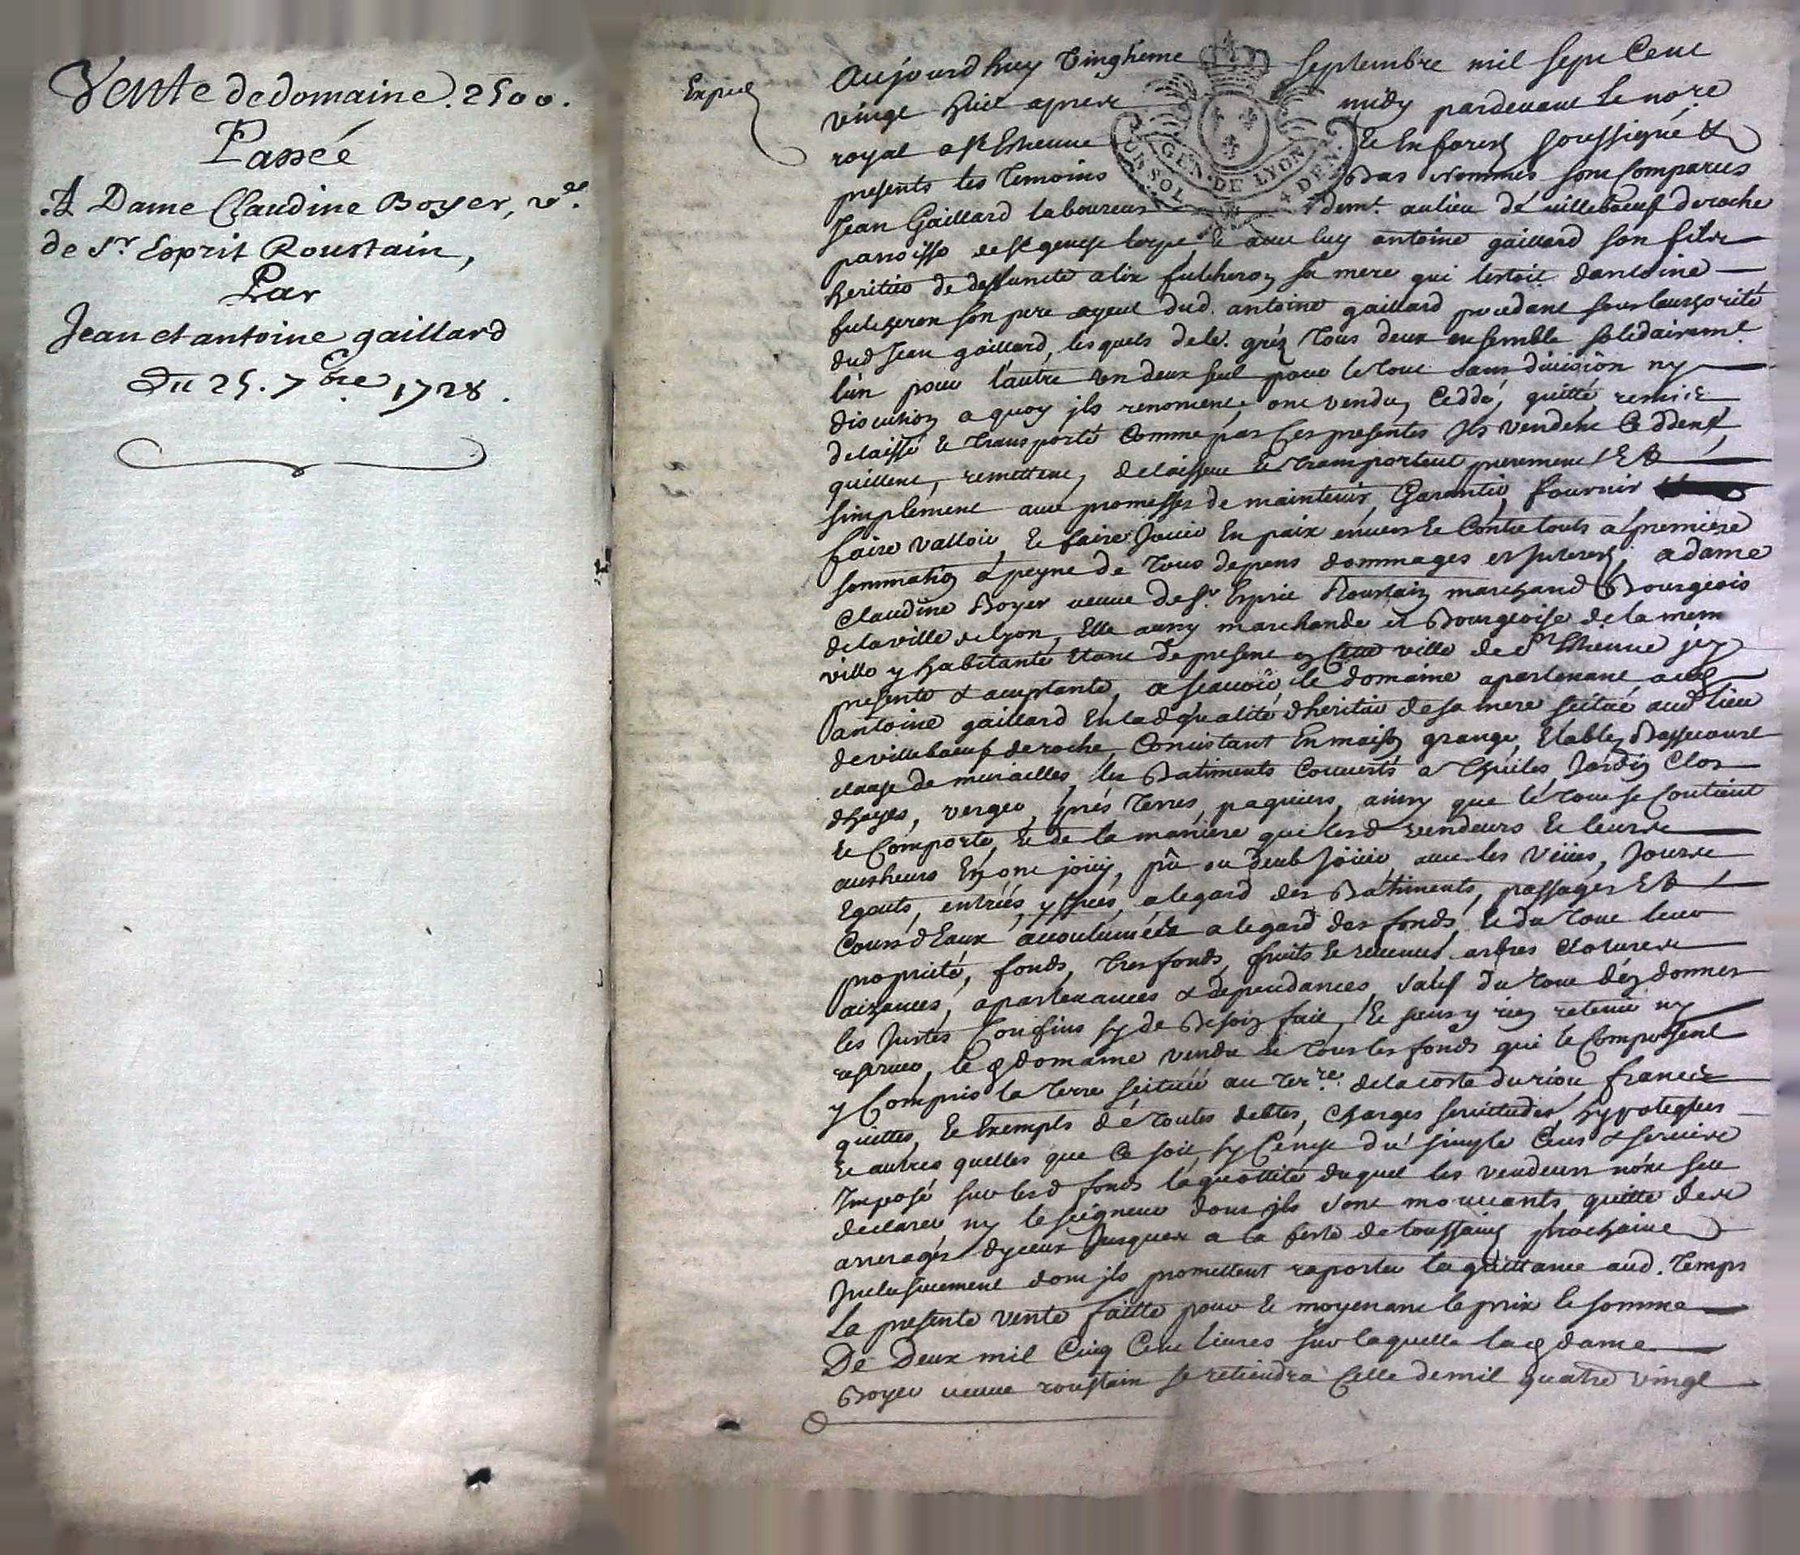 Vente de domaine. 2500.
Passée
A Dame Claudine Boyer, vᵉ.
de Sʳ Esprit Roustain,
Par
Jean et antoine gaillard
Du 25. 7bre 1728.
Exped
Aujourdhuy septembre mil sept Cent
vingt huit apres midy pardevant le noʳᵉ
royal a Sᵗ Estienne Et En forez soussigné &
presents les temoins bas nommés sont Comparus
Jean Gaillard laboureur demᵗ. au lieu de villeboeuf deroche
parroisse de Sᵗ genest lerpt, & avec luy antoine gaillard son fils
heritier de deffuncte alix fulcheron sa mere qui testoit dantoine
fulcheron son pere ayeul dud. antoine gaillard procedant sous lauthorité
dud Jean gaillard, lesquels de leʳ. gréz tous deux ensemble solidairemᵗ.
lun pour lautre un deux seul pour le tout sans division ny
discution a quoy ils renoncent, ont vendu, Ceddé, quitté remis
delaissé & transporté Comme par Ces presentes Ils vendent Ceddent,
quittent, remettent, delaissent & transportent purement &
simplement avec promesses de maintenir, Garantir, fournir
faire valloir, & faire Jouir En paix envers & Contre touts a premiere
sommation a peyne de tous depens dommages et Interests, a dame
Claudine Boyer veuve de Sʳ. Esprit Roustain marchand Bourgeois
de la ville de lyon, Elle aussy marchande et Bourgeoise de la mem
ville y habitante Etant de present en Cette ville de Sᵗ Estienne icy
presente & acceptante, a scavoir le domaine apartenant aud
antoine gaillard En lad qualité dheritier de sa mere scitué aud lieu
de villeboeuf deroche, Concistant En maison grange, Etables Bassecourt
clause de murailles, les Batiments Couverts a thuiles, Jardin Clos
dhayes, verger, prés terres, paquiers, ainsy que le tout se Contient
& Comporte, & de la maniere que lesd vendeurs & leurs
autheurs En ont joui, pû ou deub joüir avec les vües, Jours
Egouts, entrées, yssües, a legard des Batiments, passages &
Cours dEaux accoutumés a legard des fonds, & du tout leur
propriété, fonds, tresfonds, fruits & revenus arbres clotures
aizances, apartenances & dependances, sauf du tout den donner
les Justes Confins sy de Besoin fait, & sans y rien retenir ny
reserver, led domaine vendu & tous les fonds qui le Composent
y Compris la terre scituée au terʳᵉ. de la coste du riou francs
quittes, & Exempts de toutes debtes, charges servitudes, hypoteques
& autres quelles que Ce soit, sy Cenest du simple Cens & servis
Imposé sur lesd fonds la quottité duquel les vendeurs nont sceu
declarer ny le seigneur dont ils sont mouvants, quitte des
arrerages dyceux Jusques a la feste de toussaint prochaine
Inclusivement dont ils promettent raporter la quittance aud. temps
La presente vente faitte pour & moyenant le prix & somme
De Deux mil Cinq Cent livres sur laquelle lad dame
Boyer veuve roustain se retiendra Celle de mil quatre vingt